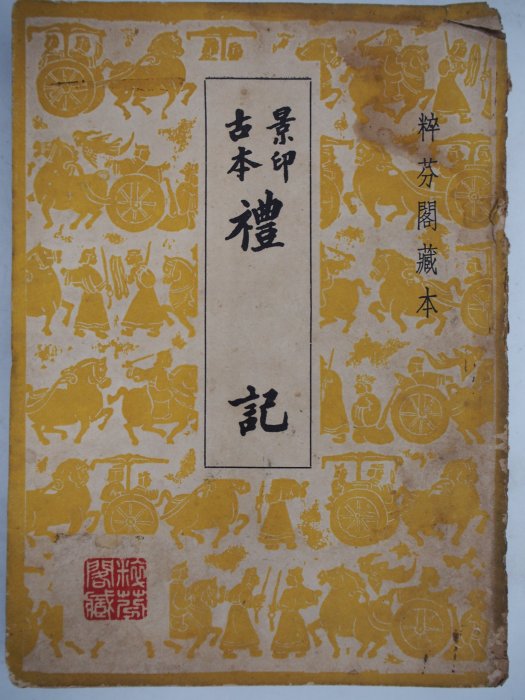 粹芬閣藏本
景印
古本
禮記
粹芬
閣藏